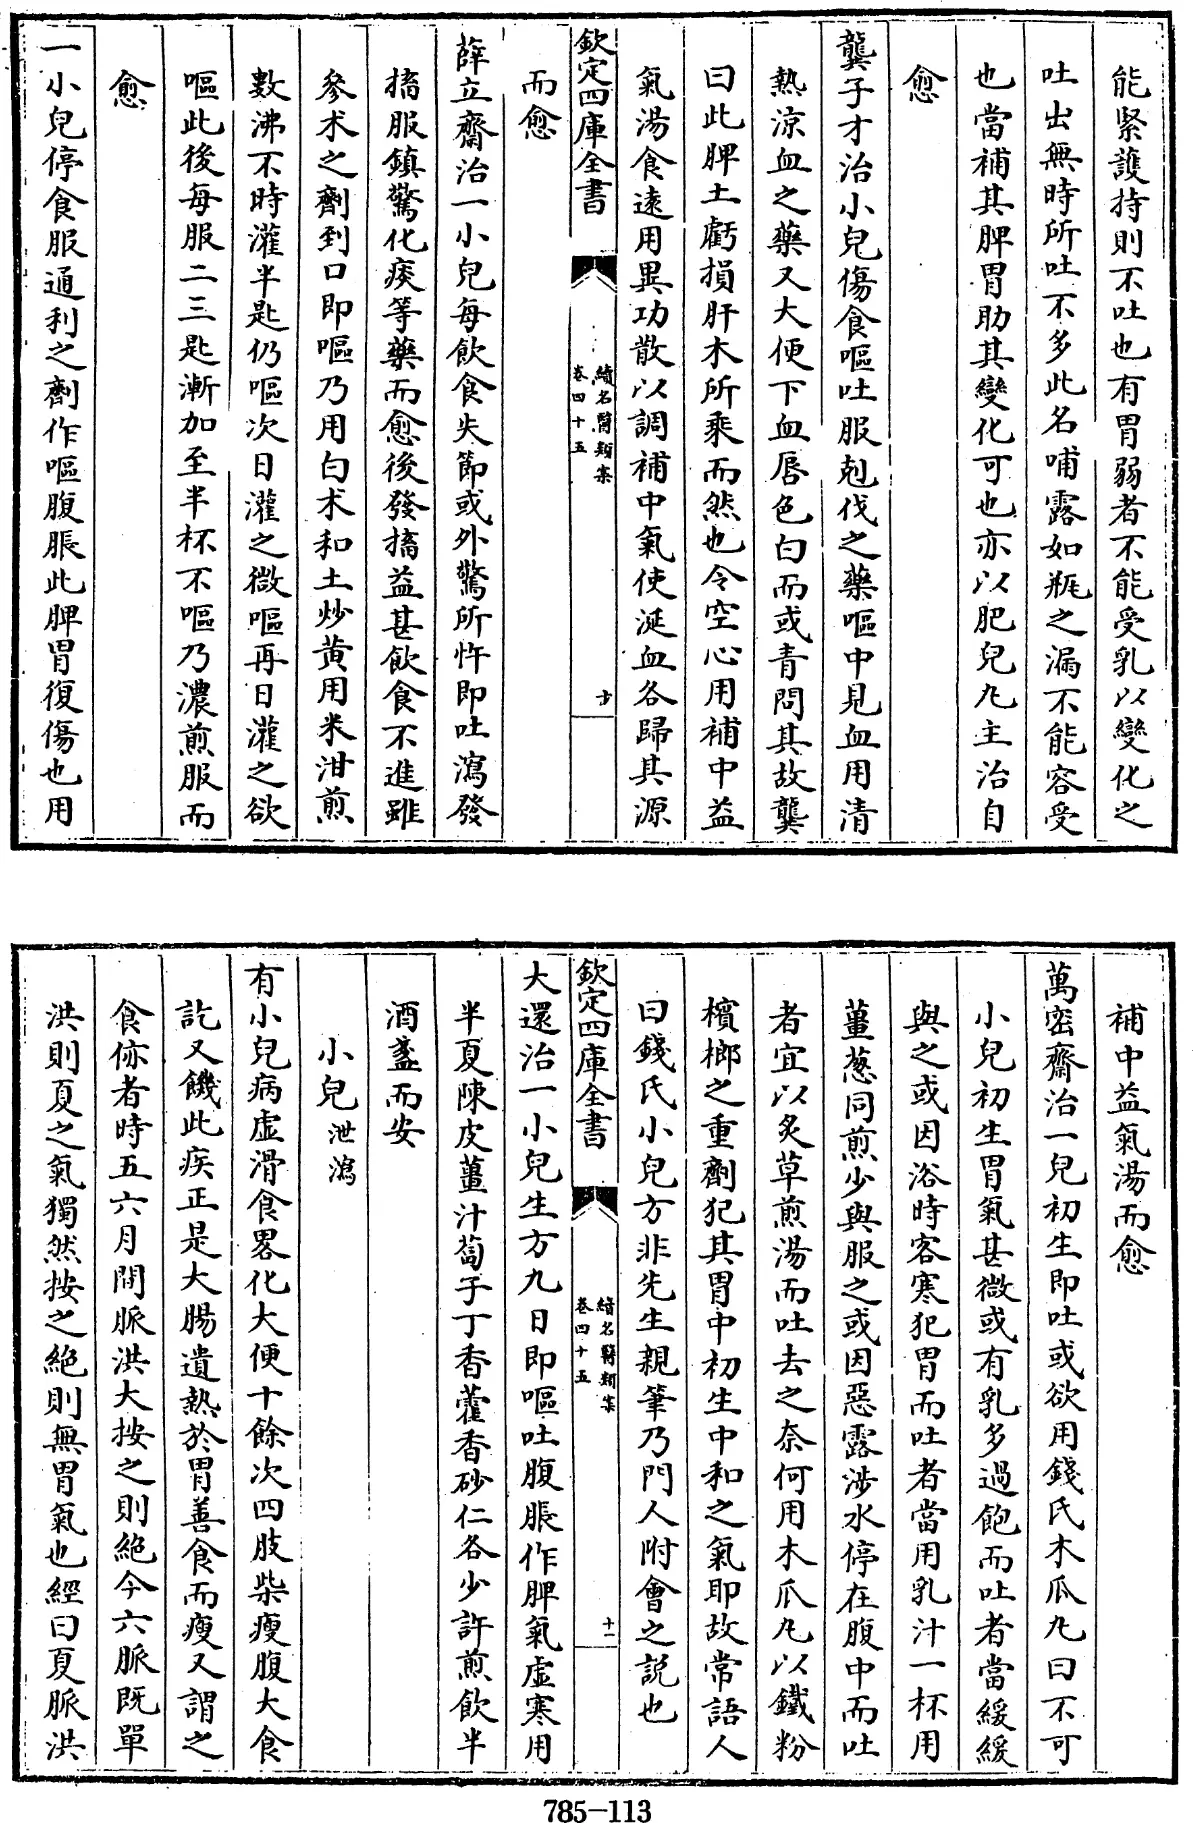 能緊護持則不吐也有胃弱者不能受乳以變化之
吐出無時所吐不多此名哺露如瓶之漏不能容受
也當補其脾胃助其變化可也亦以肥兒丸主治自
愈
龔子才治小兒傷食嘔吐服剋伐之藥嘔中見血用清
熱涼血之藥又大便下血唇色白而或青問其故龔
曰此脾土虧損肝木所乘而然也令空心用補中益
氣湯食遠用異功散以調補中氣使涎血各歸其源
欽定四庫全書
續名醫類案
卷四十五
十
而愈
薛立齋治一小兒每飲食失節或外驚所忤即吐瀉發
搐服鎮驚化痰等藥而愈後發搐益甚飲食不進雖
參术之劑到口即嘔乃用白术和土炒黄用米泔煎
數沸不時灌半匙仍嘔次日灌之微嘔再日灌之欲
嘔此後每服二三匙漸加至半杯不嘔乃濃煎服而
愈
一小兒停食服通利之劑作嘔腹脹此脾胃復傷也用
補中益氣湯而愈
萬密齋治一兒初生即吐或欲用錢氏木瓜丸曰不可
小兒初生胃氣甚微或有乳多過飽而吐者當緩緩
與之或因浴時客寒犯胃而吐者當用乳汁一杯用
薑葱同煎少與服之或因惡露涉水停在腹中而吐
者宜以炙草煎湯而吐去之奈何用木瓜丸以鐵粉
檳榔之重劑犯其胃中初生中和之氣耶故常語人
曰錢氏小兒方非先生親筆乃門人附會之說也
欽定四庫全書
續名醫類案
卷四十五
十一
大還治一小兒生方九日即嘔吐腹脹作脾氣虛寒用
半夏陳皮薑汁蔔子丁香藿香砂仁各少許煎飲半
酒盞而安
小兒泄瀉
有小兒病虛滑食畧化大便十餘次四肢柴瘦腹大食
訖又饑此疾正是大腸遺熱於胃善食而瘦又謂之
食㑊者時五六月間脈洪大按之則絶今六脈既單
洪則夏之氣獨然按之絶則無胃氣也經曰夏脈洪
785-113